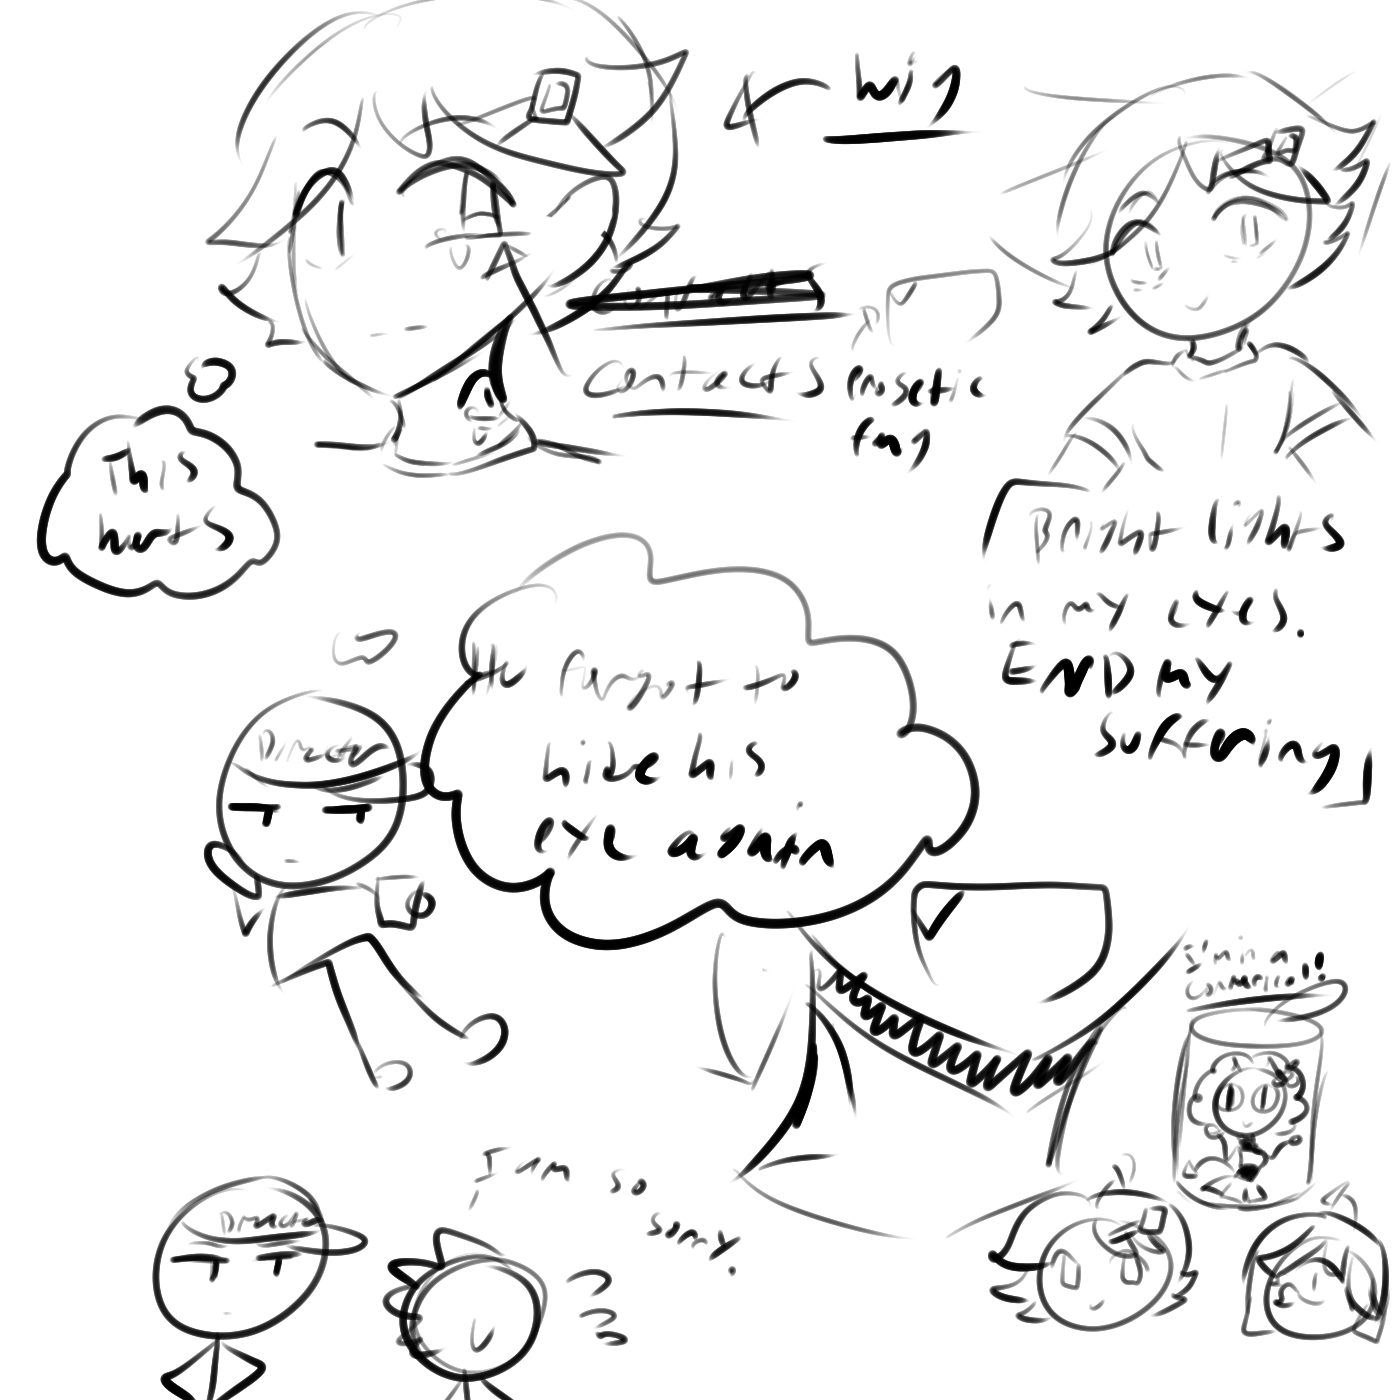 wig
contacts
prosetic
fang
This
hurts
Bright lights
in my eyes.
END MY
suffering
He forgot to
hide his
eye again
Director
I'm in a
I am so
sorry.
Director